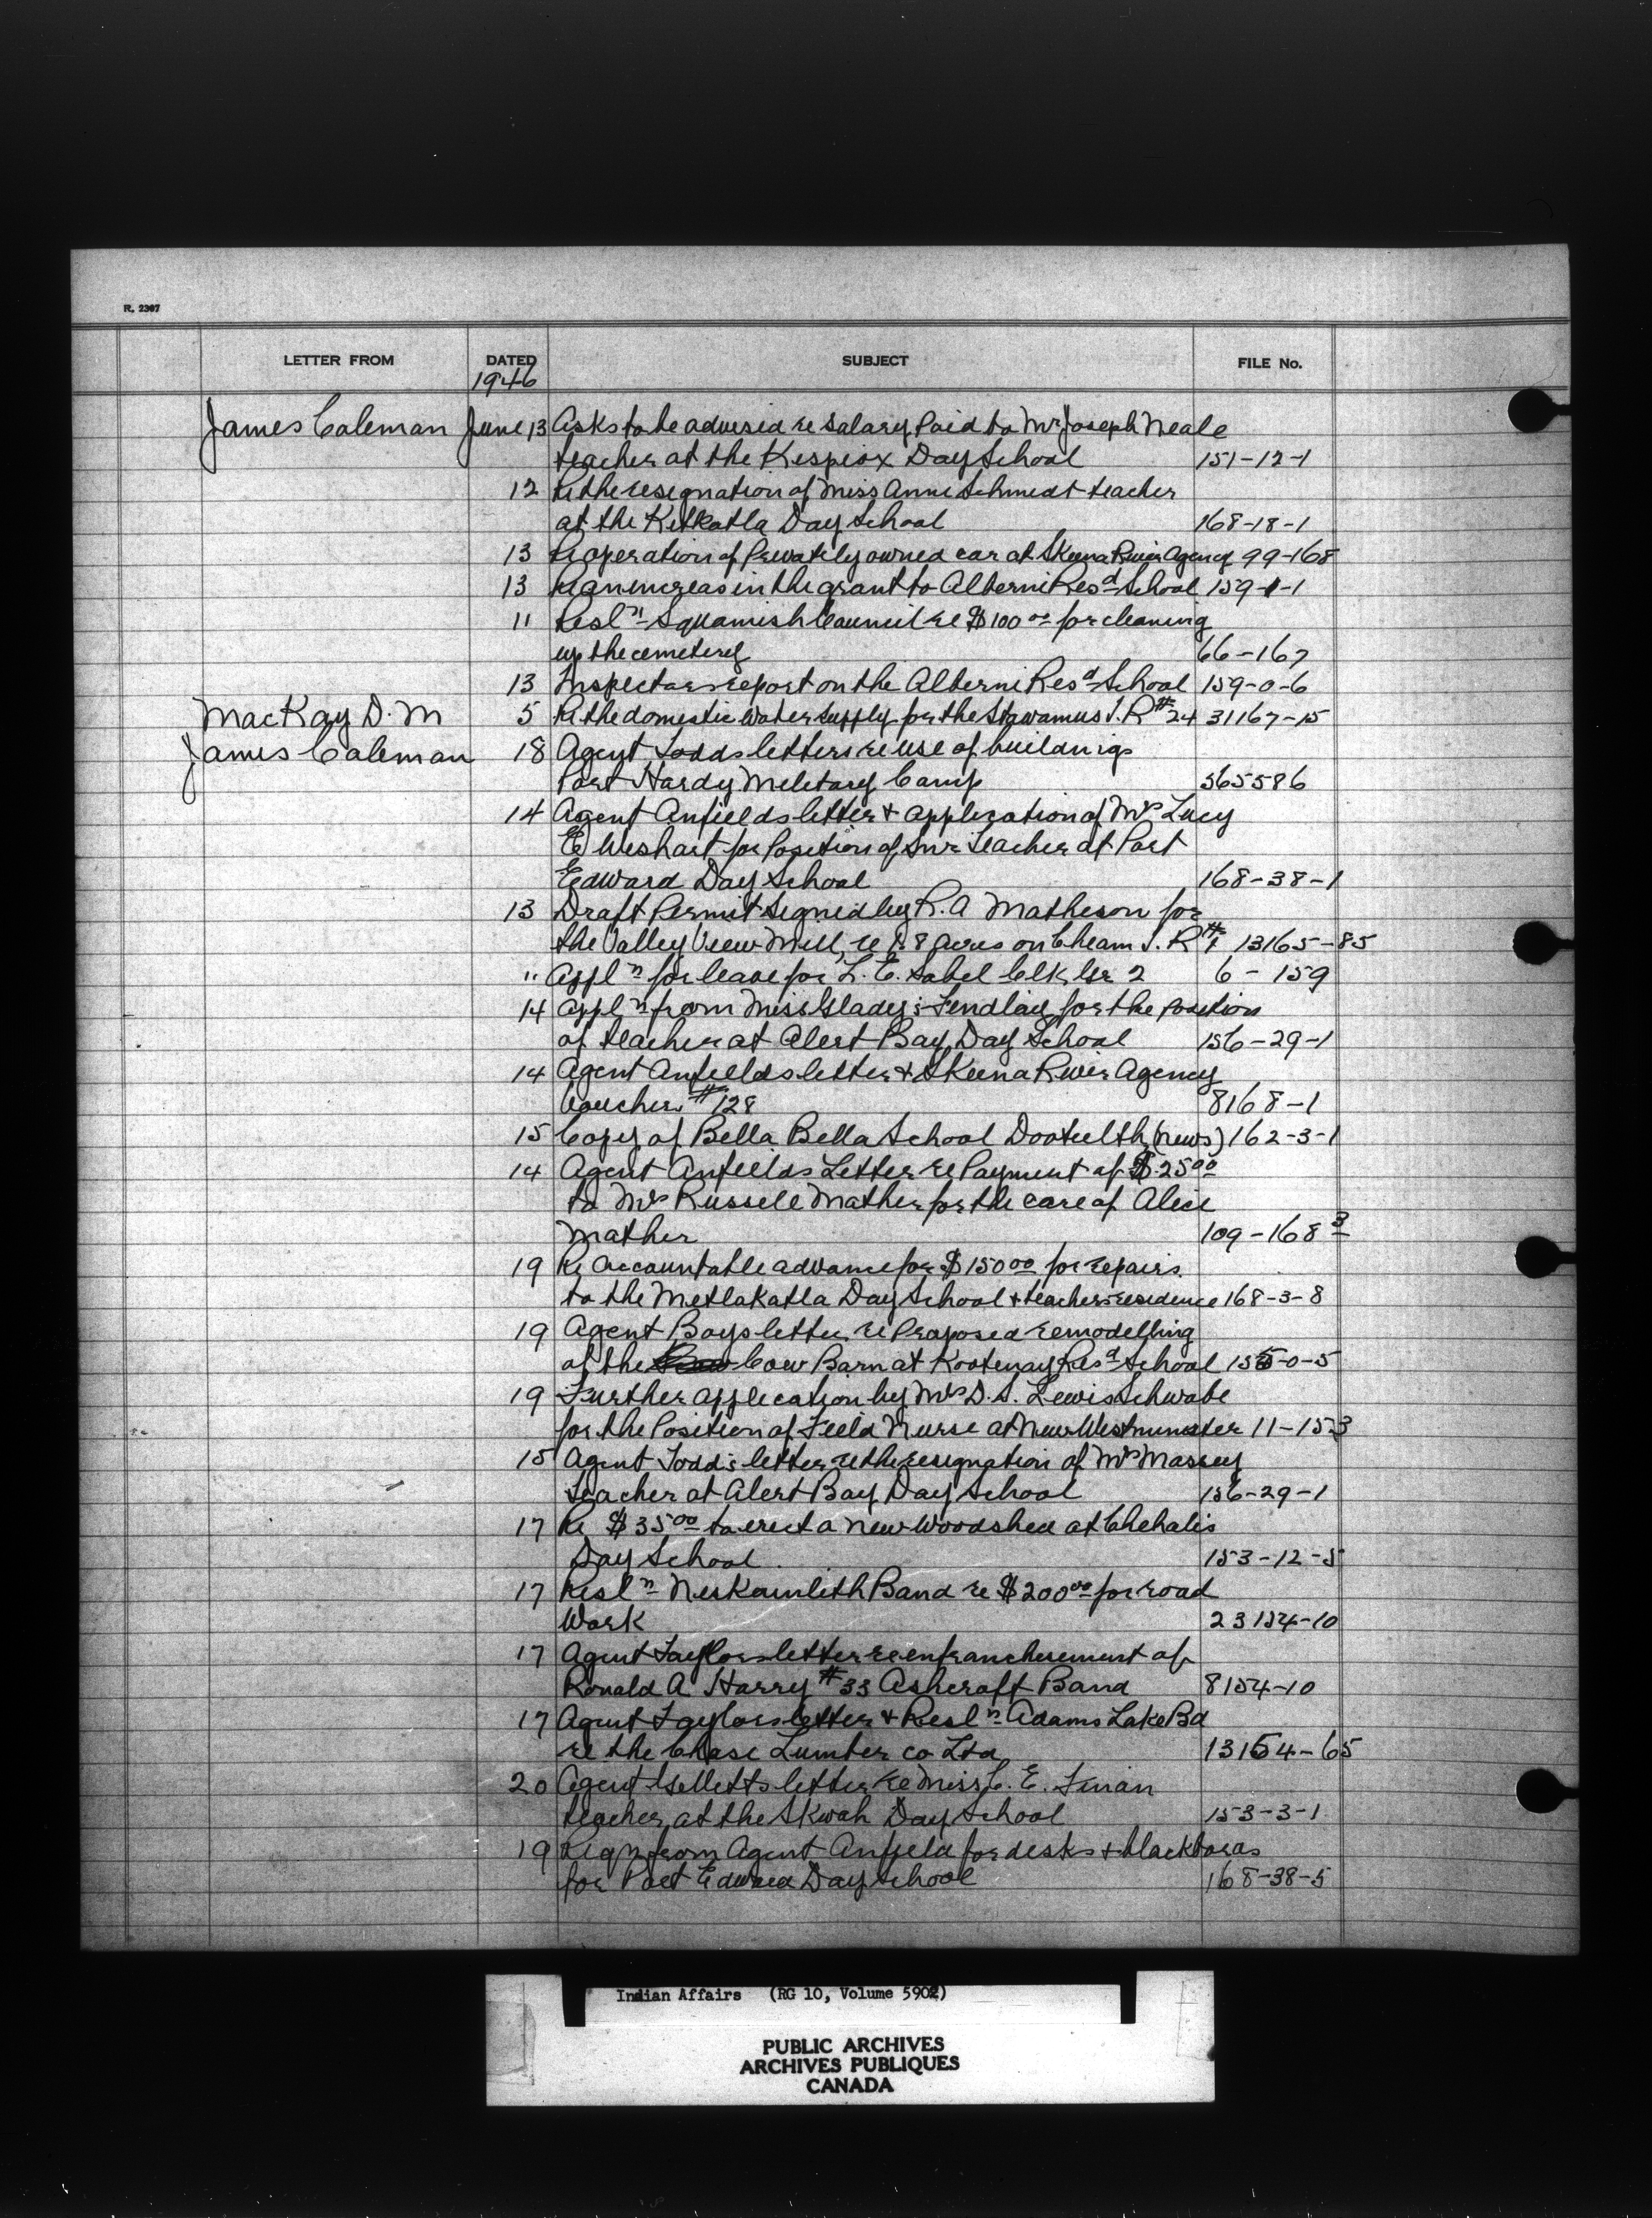 R. 2397
LETTER FROM DATED SUBJECT FILE No.
1946
James Coleman June 13 Asks to be advised re salary Paid to Mr Joseph Neale
teacher at the Kispiox Day School 151-12-1
12 Re the resignation of Miss Anne Schmidt teacher
at the Kitkatla Day School 168-18-1
13 Re operation of Privately owned car at Skeena River Agency 99-168
13 Re an increas in the grant to Alberni Resd School 159-1-1
11 Resln Squamish Council re $100 00 for cleaning
up the cemetery 66-167
13 Inspectors report on the Alberni Resd School 159-0-6
MacKay D. M 5 Re the domestic Water Supply for the Stawamus I. R # 24 31167-15
James Coleman 18 Agent Todds letters re use of buildings
Port Hardy Military Camp 365586
14 Agent Anfields letter & application of Mrs Lucy
E Wishart for Position of Jnr Teacher at Port
Edward Day School 168-38-1
13 Draft Permit Signed by R. A Matheson for
the Valley View Mill, re 1.8 Acres on Cheam I. R # 1 13165-85
" Appln for leave for L. E. Sabel Clk Gr 2 6-159
14 Appln from Miss Gladys Findlay for the position
of teacher at Alert Bay Day School 156-29-1
14 Agent Anfields letter & Skeena River Agency
Voucher #128 8168-1
15 Copy of Bella Bella School Dootulth (news) 162-3-1
14 Agent Anfields Letter re Payment of $ 25 00
to Mrs Russell Mather for the care of Alice
Mather 109-168 3
19 Re Accountable advance for $150 00 for repairs
to the Metlakatla Day School & teachers residence 168-3-8
19 Agent Boys letter re Proposed remodelling
of the Cow Barn at Kootenay Resd School 155-0-5
19 Further application by Mrs D. S. Lewis Schwabe
for the Position of Field Nurse at New Westminster 11-153
15 Agent Todd's letter re the resignation of Mrs Massey
teacher at Alert Bay Day School 156-29-1
17 Re $35 00 to erect a new Woodshed at Chehalis
Day School 153-12-5
17 Resln Neskainlith Band re $200 00 for road
Work 23154-10
17 Agent Taylors letter re enfranchisement of
Ronald A Harry #33 Ashcroft Band 8154-10
17 Agent Taylors letter & Resln Adams Lake Bd
re the Chase Lumber co Ltd 13154-65
20 Agent Gilletts letter re Miss C. E. Finan
teacher at the Skwah Day School 153-3-1
19 Reqn from Agent Anfield for desks & blackboras
for Port Edward Day School 168-38-5
Indian Affairs (RG 10, Volume 5902)
PUBLIC ARCHIVES
ARCHIVES PUBLIQUES
CANADA